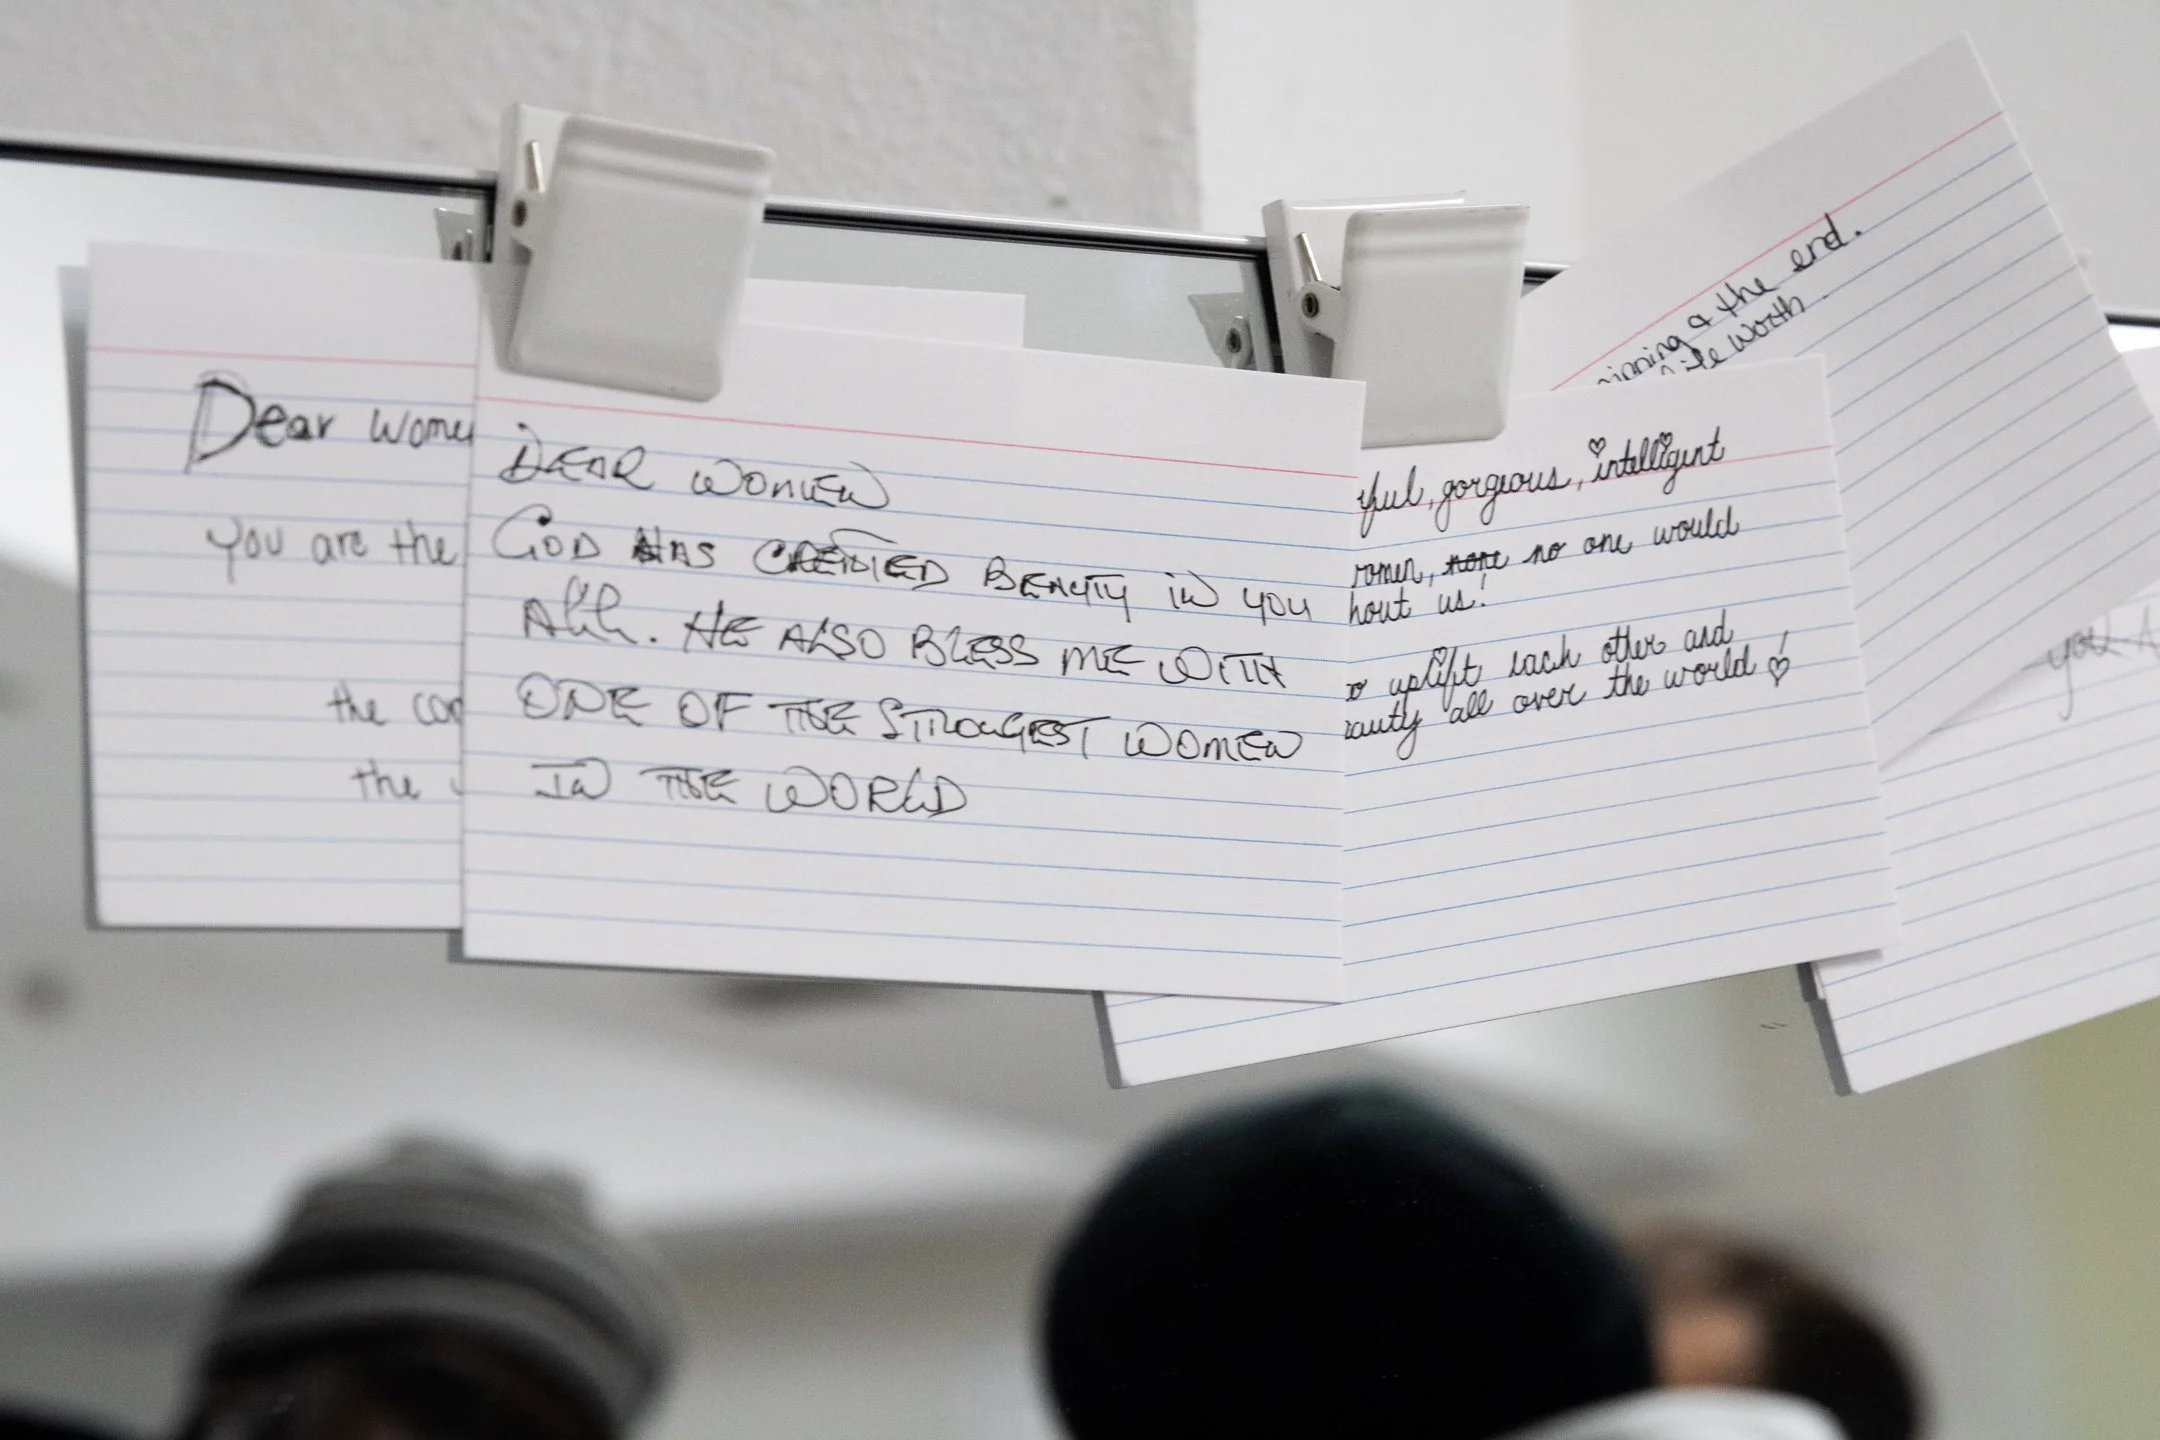 Dear
you are the
the
the
DEAR WOMEN
GOD HAS CREATED BEAUTY IN YOU
ALL. HE ALSO BLESS ME WITH
ONE OF THE STROGEST WOMEN
IN THE WORLD
gorgeous, intelligent
no one would
us!
uplift each other and
all over the world!
& the end.
worth
you